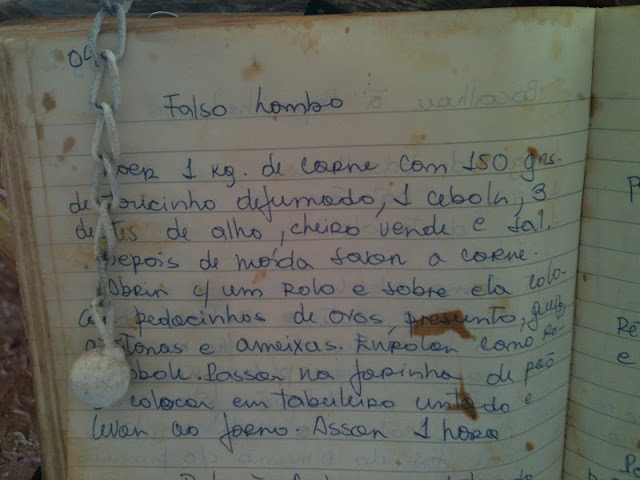 04
Falso Lombo
oer 1 kg. de carne com 150 grs.
de toucinho defumado, 1 cebola, 3
dentes de alho, cheiro verde e sal.
depois de moída sovar a carne.
Abrir c/ um rolo e sobre ela colo-
car pedacinhos de ovos, presunto,
azeitonas e ameixas. Enrolar como ro-
cambole. Passar na farinha de pão
e colocar em tabuleiro untado e
levar ao forno. Assar 1 hora.